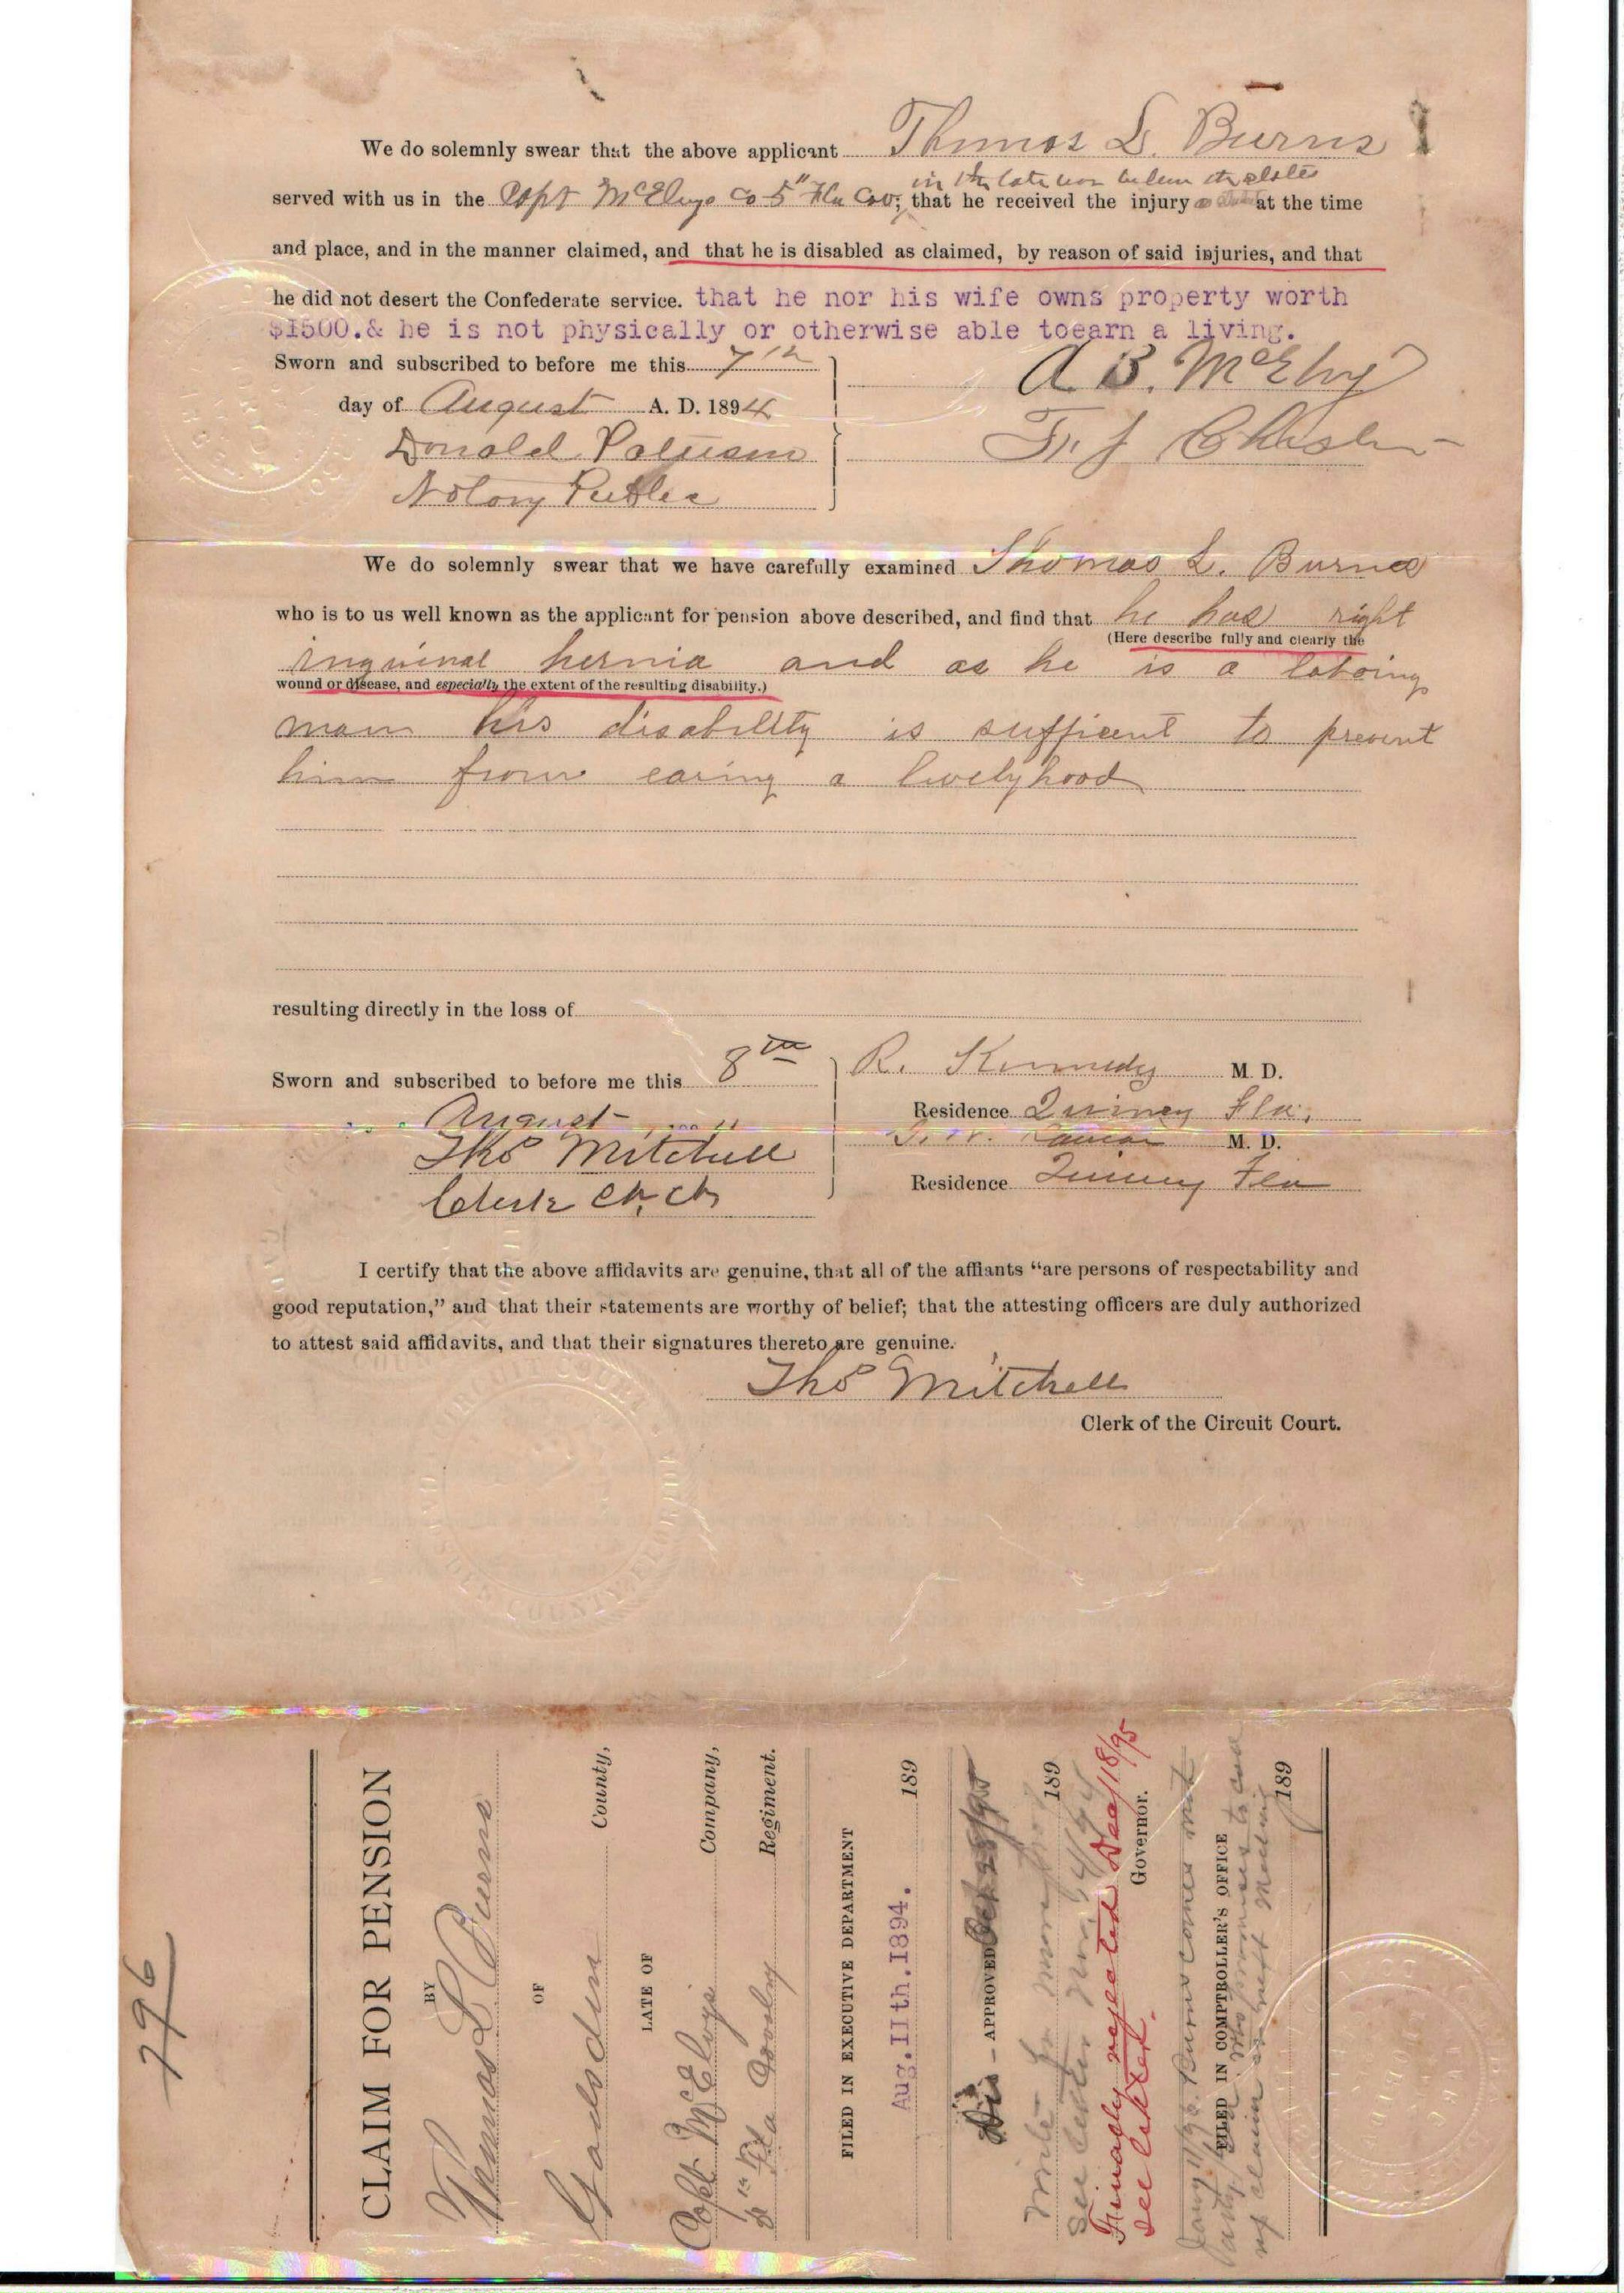 We do solemnly swear that the above applicant Thomas L. Burns
in the late war between the states
served with us in the Capt McElvys Co 5" Fla Cav; that he received the injury at the time
and place, and in the manner claimed, and that he is disabled as claimed, by reason of said injuries, and that
he did not desert the Confederate service. that he nor his wife owns property worth
$1500.& he is not physically or otherwise able toearn a living.
Sworn and subscribed to before me this 7th
day of August A. D. 1894
A B. McElvy
Donald
Notary Public
F. J
We do solemnly swear that we have carefully examined Thomas L. Burns
who is to us well known as the applicant for pension above described, and find that he has right
(Here describe fully and clearly the
inguinal hernia and as he is a laboring
wound or disease, and especially the extent of the resulting disability.)
man his disability is sufficent to prevent
him from earing a livelyhood
resulting directly in the loss of
Sworn and subscribed to before me this 8th
August
Thos Mitchell
Clerk Ct. Ct
R. Kennedy M. D.
Residence Quincy Fla.
M. D.
Residence Quincy Fla
I certify that the above affidavits are genuine, that all of the affiants “are persons of respectability and
good reputation,” and that their statements are worthy of belief; that the attesting officers are duly authorized
to attest said affidavits, and that their signatures thereto are genuine.
Thos Mitchell
Clerk of the Circuit Court.
CIRCUIT COURT
COUNTY, FLORIDA
796
CLAIM FOR PENSION
BY
Thomas L Burns
OF
Gadsden County,
LATE OF
Capt McElvys Company,
5th Fla Cavalry Regiment.
FILED IN EXECUTIVE DEPARTMENT
Aug.11th.1894. 189
Dis - APPROVED Oct 25/95
Write for more proof 189
See letter Nov. 9/94
Finally rejected Dec/18/95
See letter.
Governor.
Jany 11/96. Burns comes out
FILED IN COMPTROLLER'S OFFICE
who promises to
up claim next meeting
189